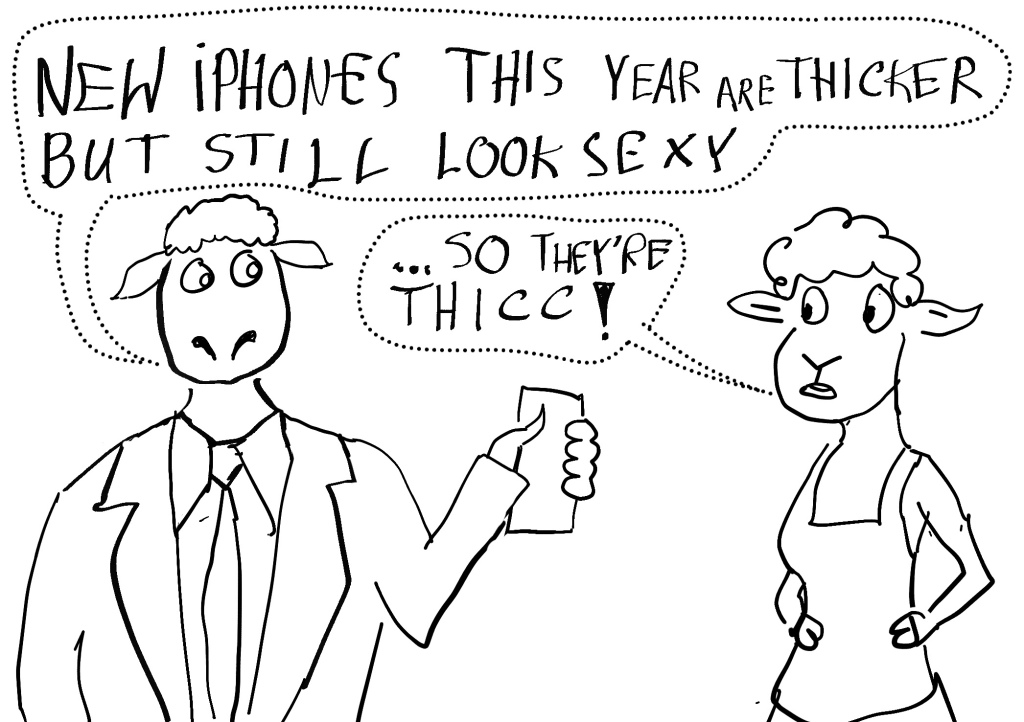 NEW iPHONES THIS YEAR ARE THICKER
BUT STILL LOOK SEXY
...SO THEY'RE
THICC!